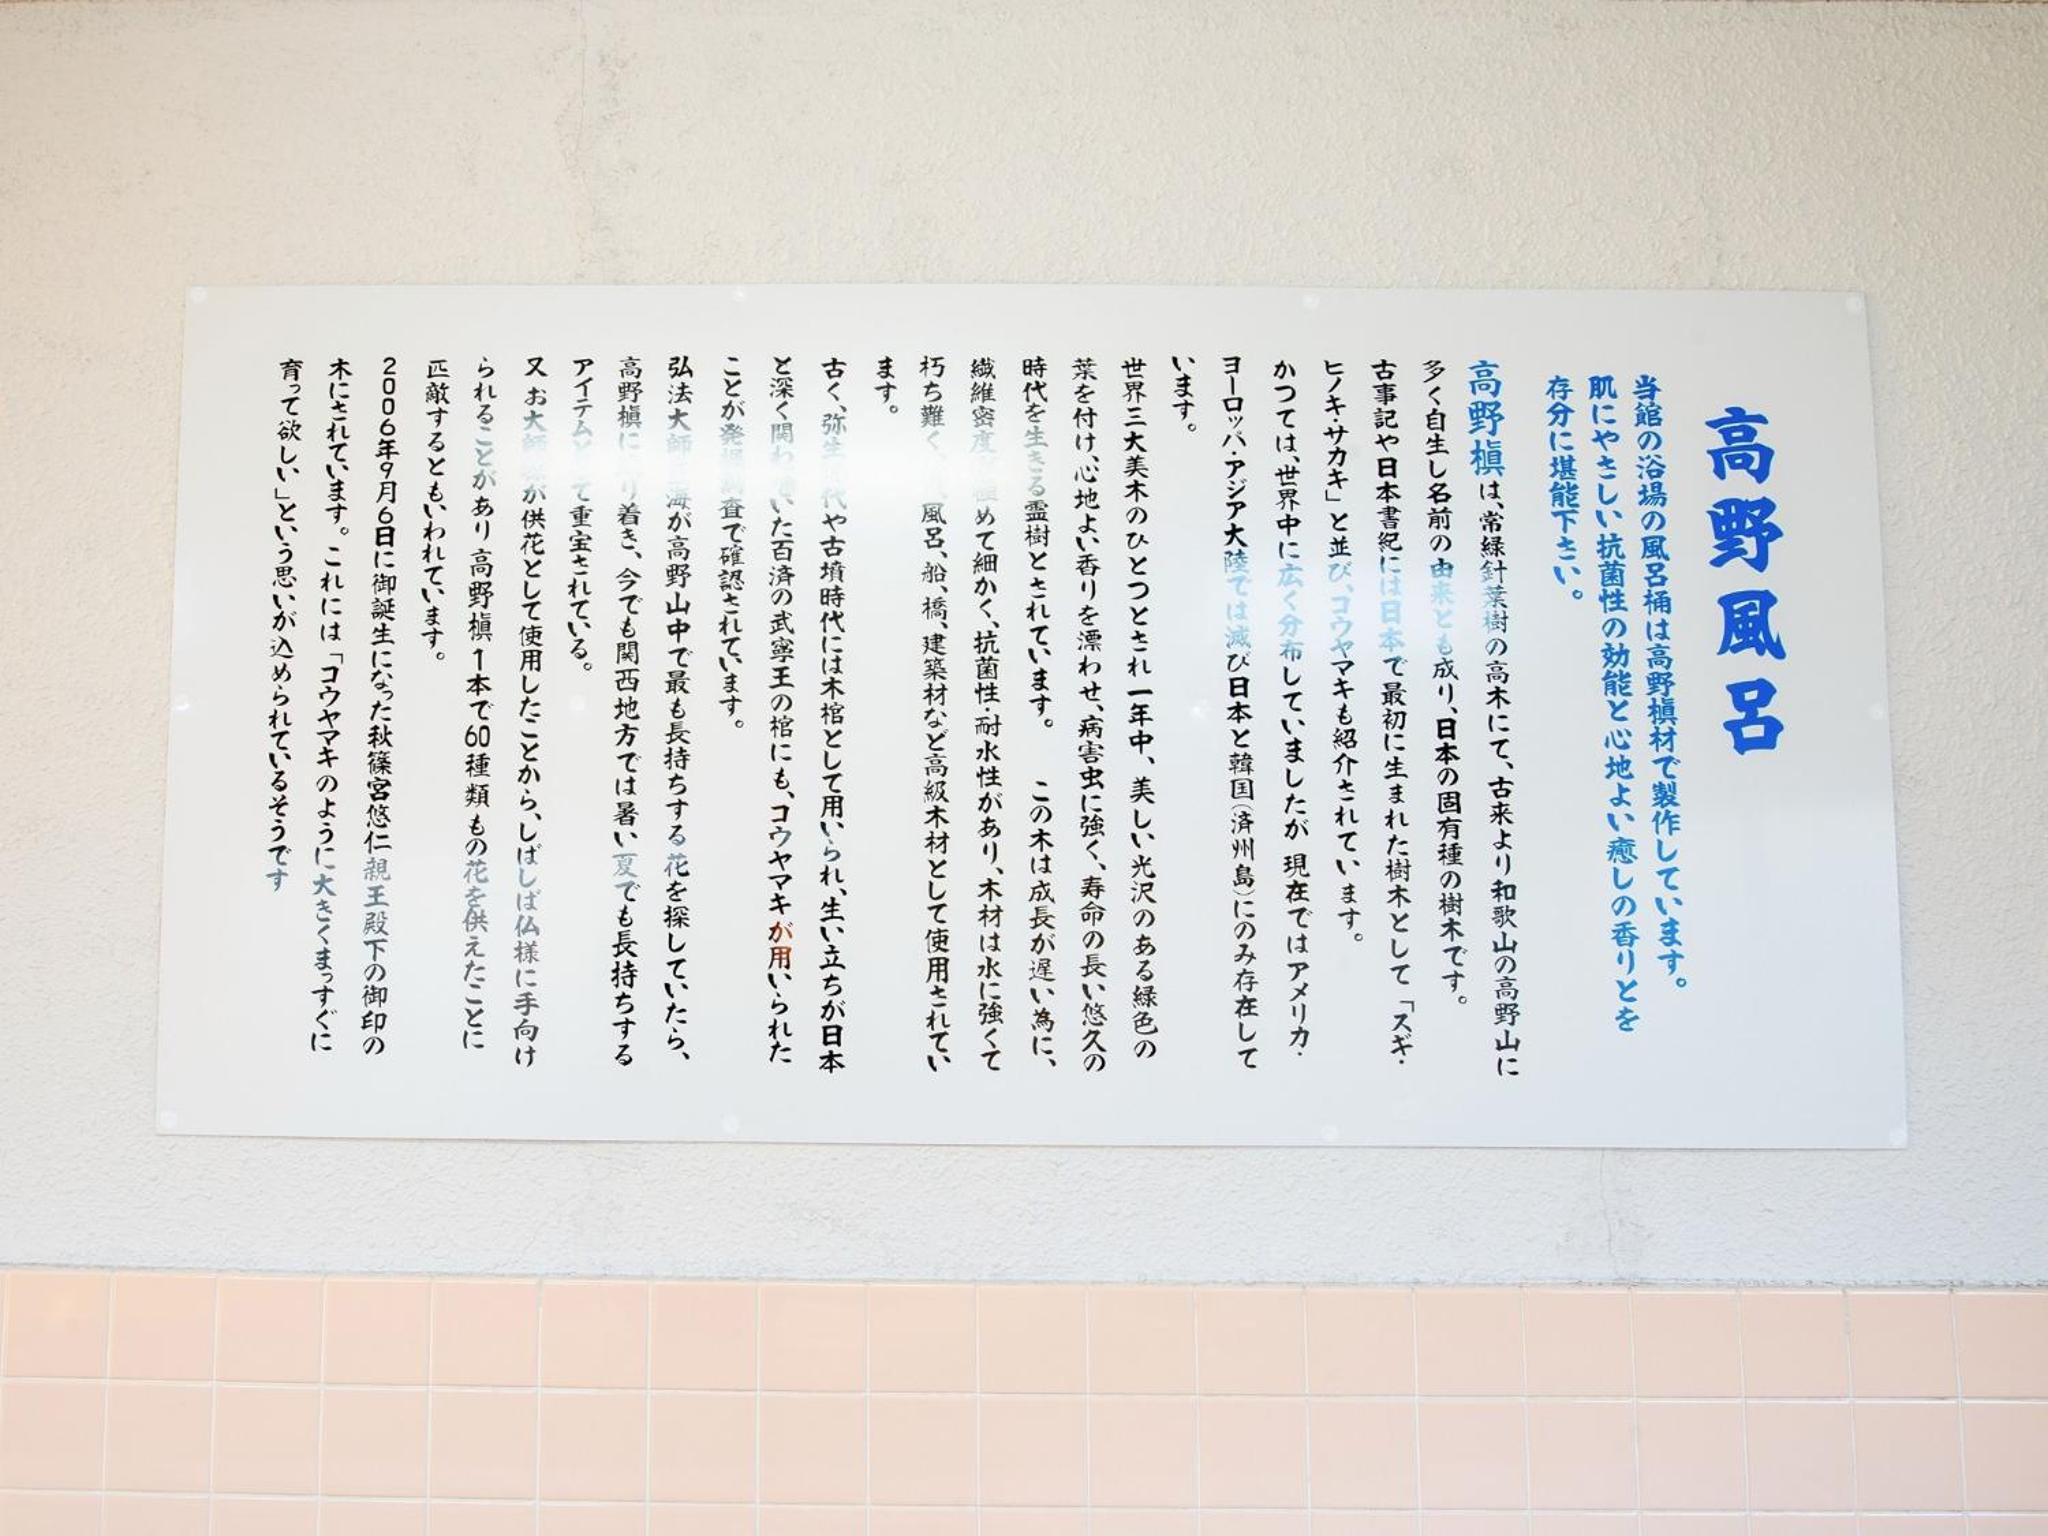 高野風呂
当館の浴場の風呂桶は高野槇材で製作しています。
肌にやさしい抗菌性の効能と心地よい癒しの香りとを
存分に堪能下さい。
高野槇は、常緑針葉樹の高木にて、古来より和歌山の高野山に
多く自生し名前の由来とも成り、日本の固有種の樹木です。
古事記や日本書紀には日本で最初に生まれた樹木として「スギ・
ヒノキ・サカキ」と並び、コウヤマキも紹介されています。
かつては、世界中に広く分布していましたが 現在ではアメリカ・
ヨーロッパ・アジア大陸では滅び日本と韓国(済州島)にのみ存在して
います。
世界三大美木のひとつとされ一年中、美しい光沢のある緑色の
葉を付け、心地よい香りを漂わせ、病害虫に強く、寿命の長い悠久の
時代を生きる霊樹とされています。 この木は成長が遅い為に、
繊維密度が極めて細かく、抗菌性・耐水性があり、木材は水に強くて
朽ち難く、風呂、船、橋、建築材など高級木材として使用されてい
ます。
古く、弥生時代や古墳時代には木棺として用いられ、生い立ちが日本
と深く関わっていた百済の武寧王の棺にも、コウヤマキが用いられた
ことが発掘調査で確認されています。
弘法大師空海が高野山中で最も長持ちする花を探していたら、
高野槇にたどり着き、今でも関西地方では暑い夏でも長持ちする
アイテムとして重宝されている。
又 お大師様が供花として使用したことから、しばしば仏様に手向け
られることがあり 高野槇 1本で60種類もの花を供えたことに
匹敵するともいわれています。
2006年9月6日に御誕生になった秋篠宮悠仁親王殿下の御印の
木にされています。これには「コウヤマキのように大きくまっすぐに
育って欲しい」という思いが込められているそうです